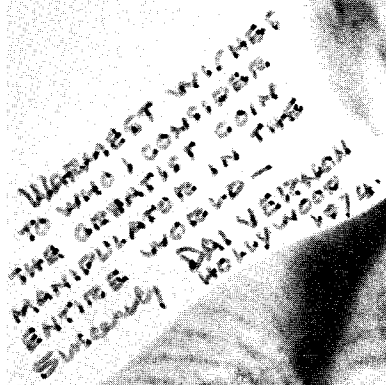 WARMEST WISHES
TO WHO I CONSIDER
THE GREATEST COIN
MANIPULATOR IN THE
ENTIRE WORLD —
Sincerely DAI VERNON
HOLLYWOOD 1974.